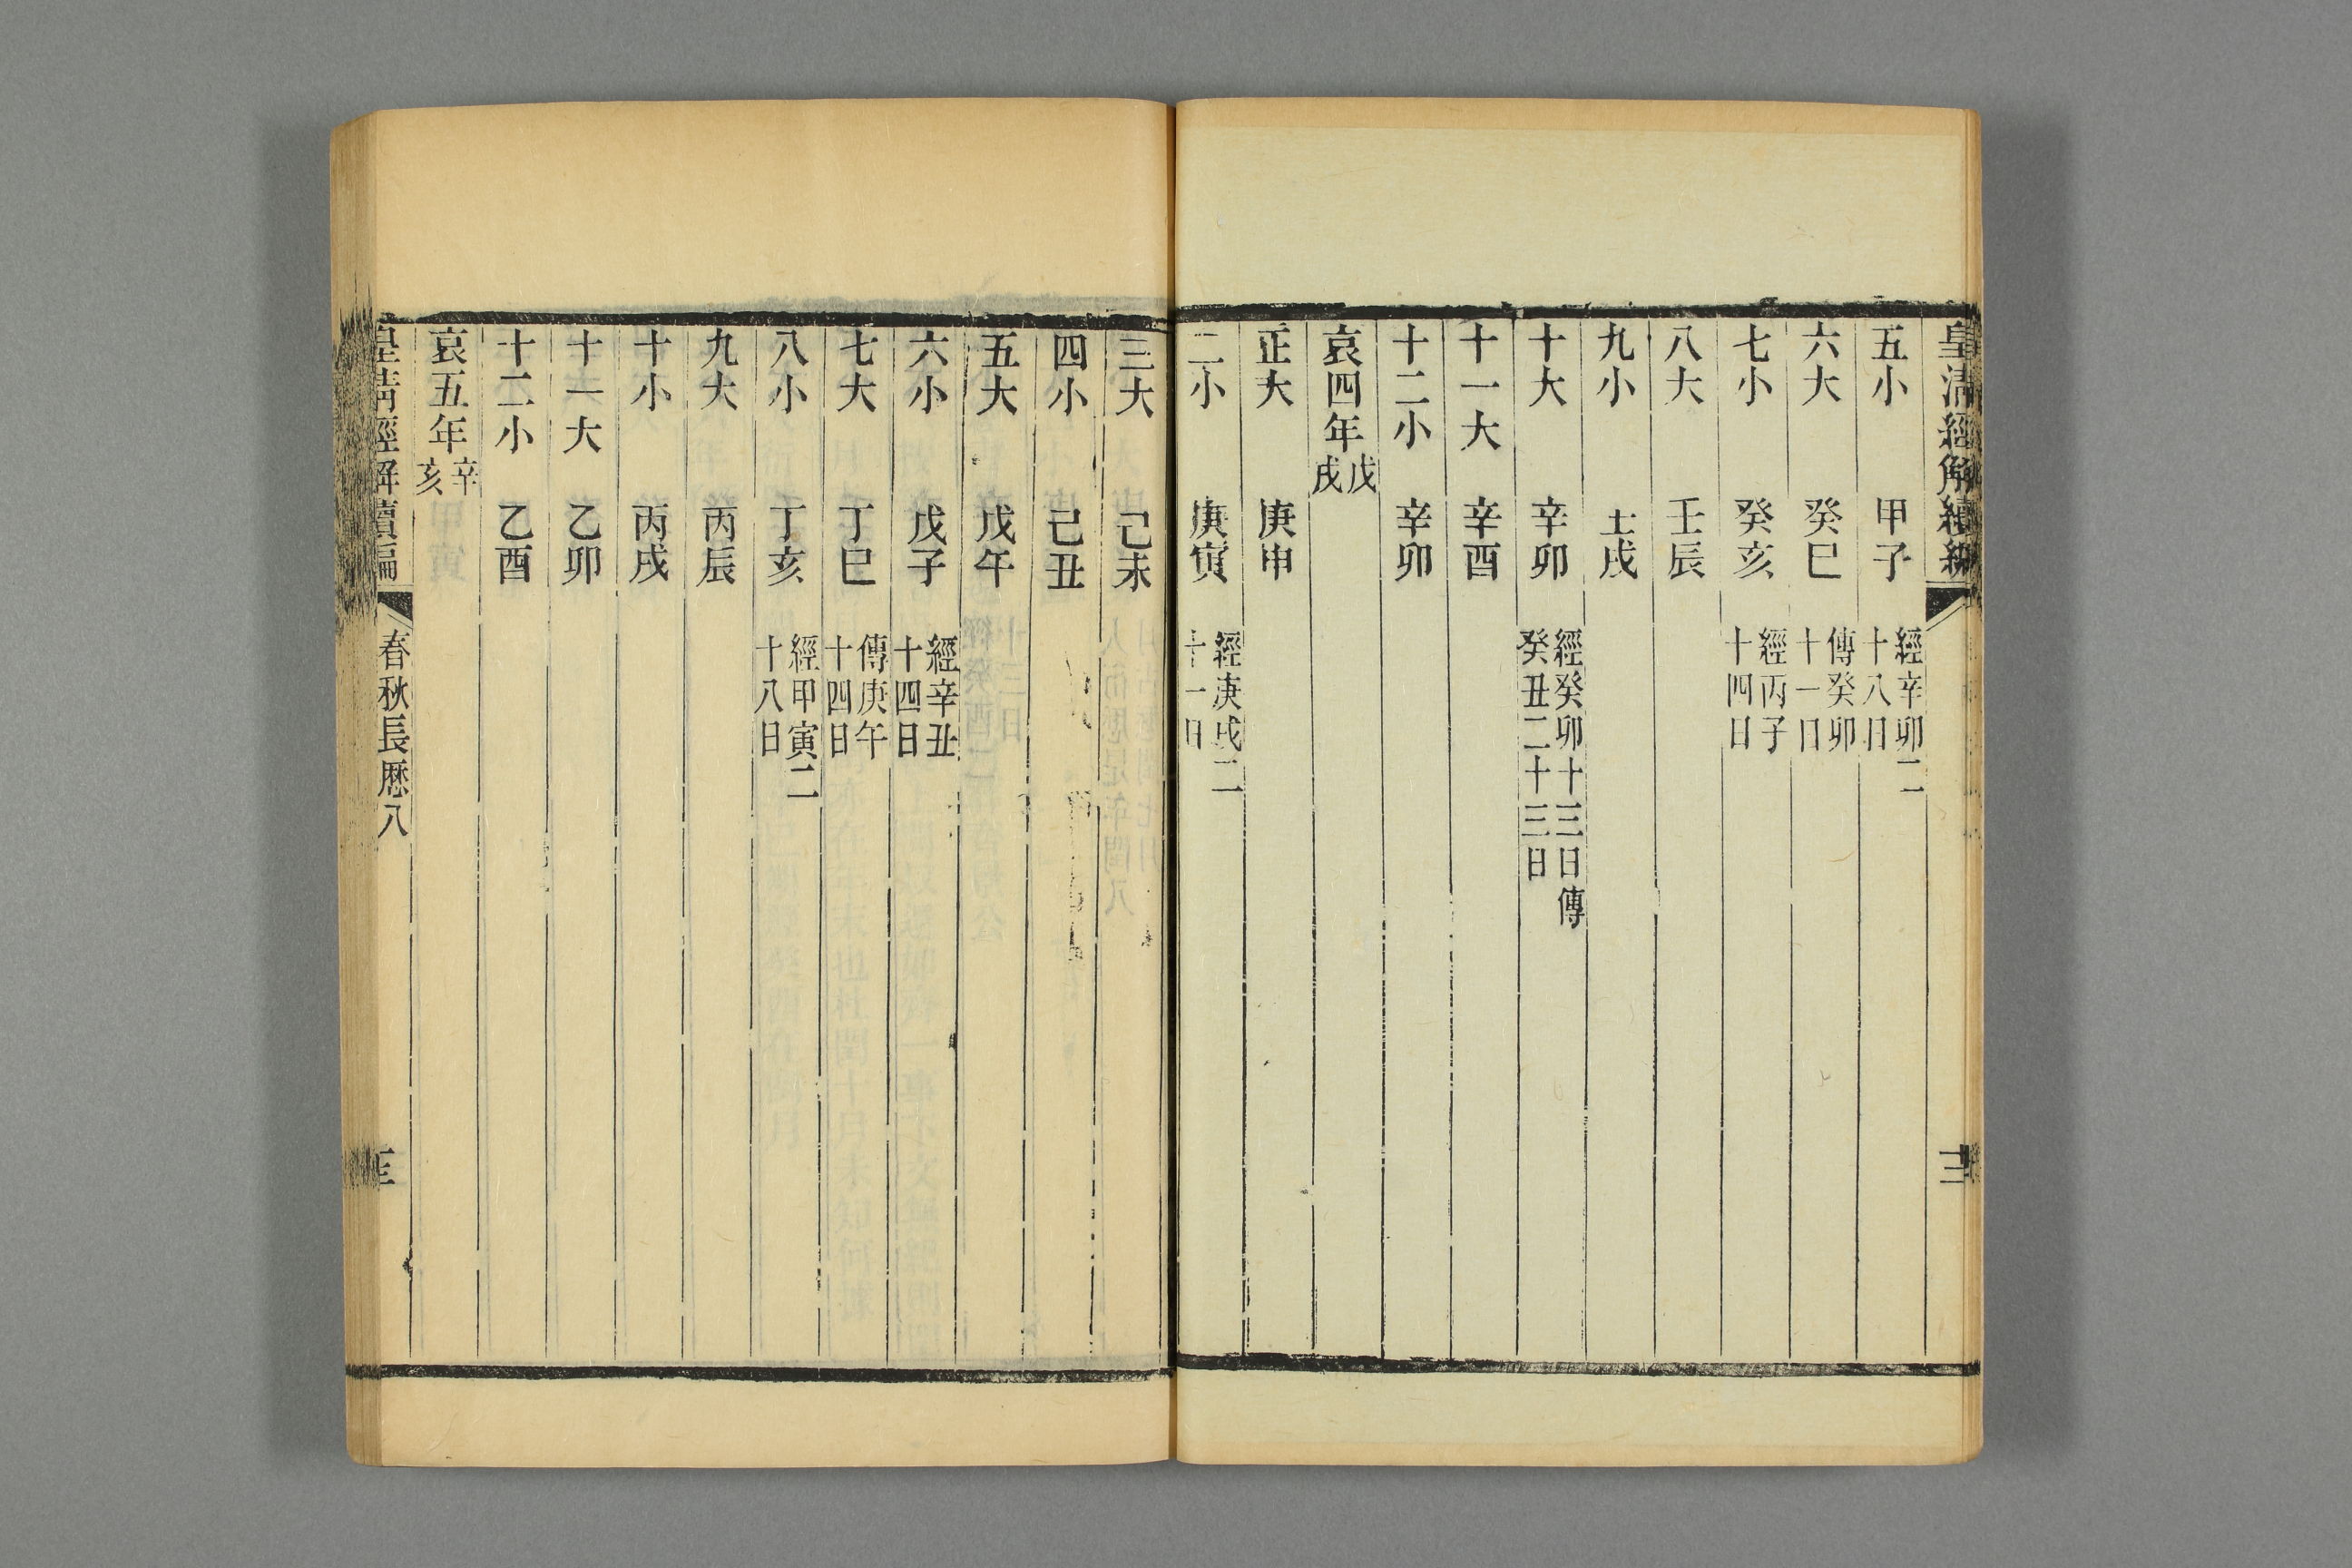 皇清經解續編
五小 甲子 經辛卯二十八日
六大 癸巳 傳癸卯十一日
七小 癸亥 經丙子十四日
八大 壬辰
九小 壬戌
十大 辛卯 經癸卯十三日傳癸丑二十三日
十一大 辛酉
十二小 辛卯
哀四年戊戌
正大 庚申
二小 庚寅 經庚戌二十一日
三大 己未
四小 己丑
五大 戊午
六小 戊子 經辛丑十四日
七大 丁巳 傳庚午十四日
八小 丁亥 經甲寅二十八日
九大 丙辰
十小 丙戌
十一大 乙卯
十二小 乙酉
哀五年辛亥
皇清經解續編 春秋長厯八